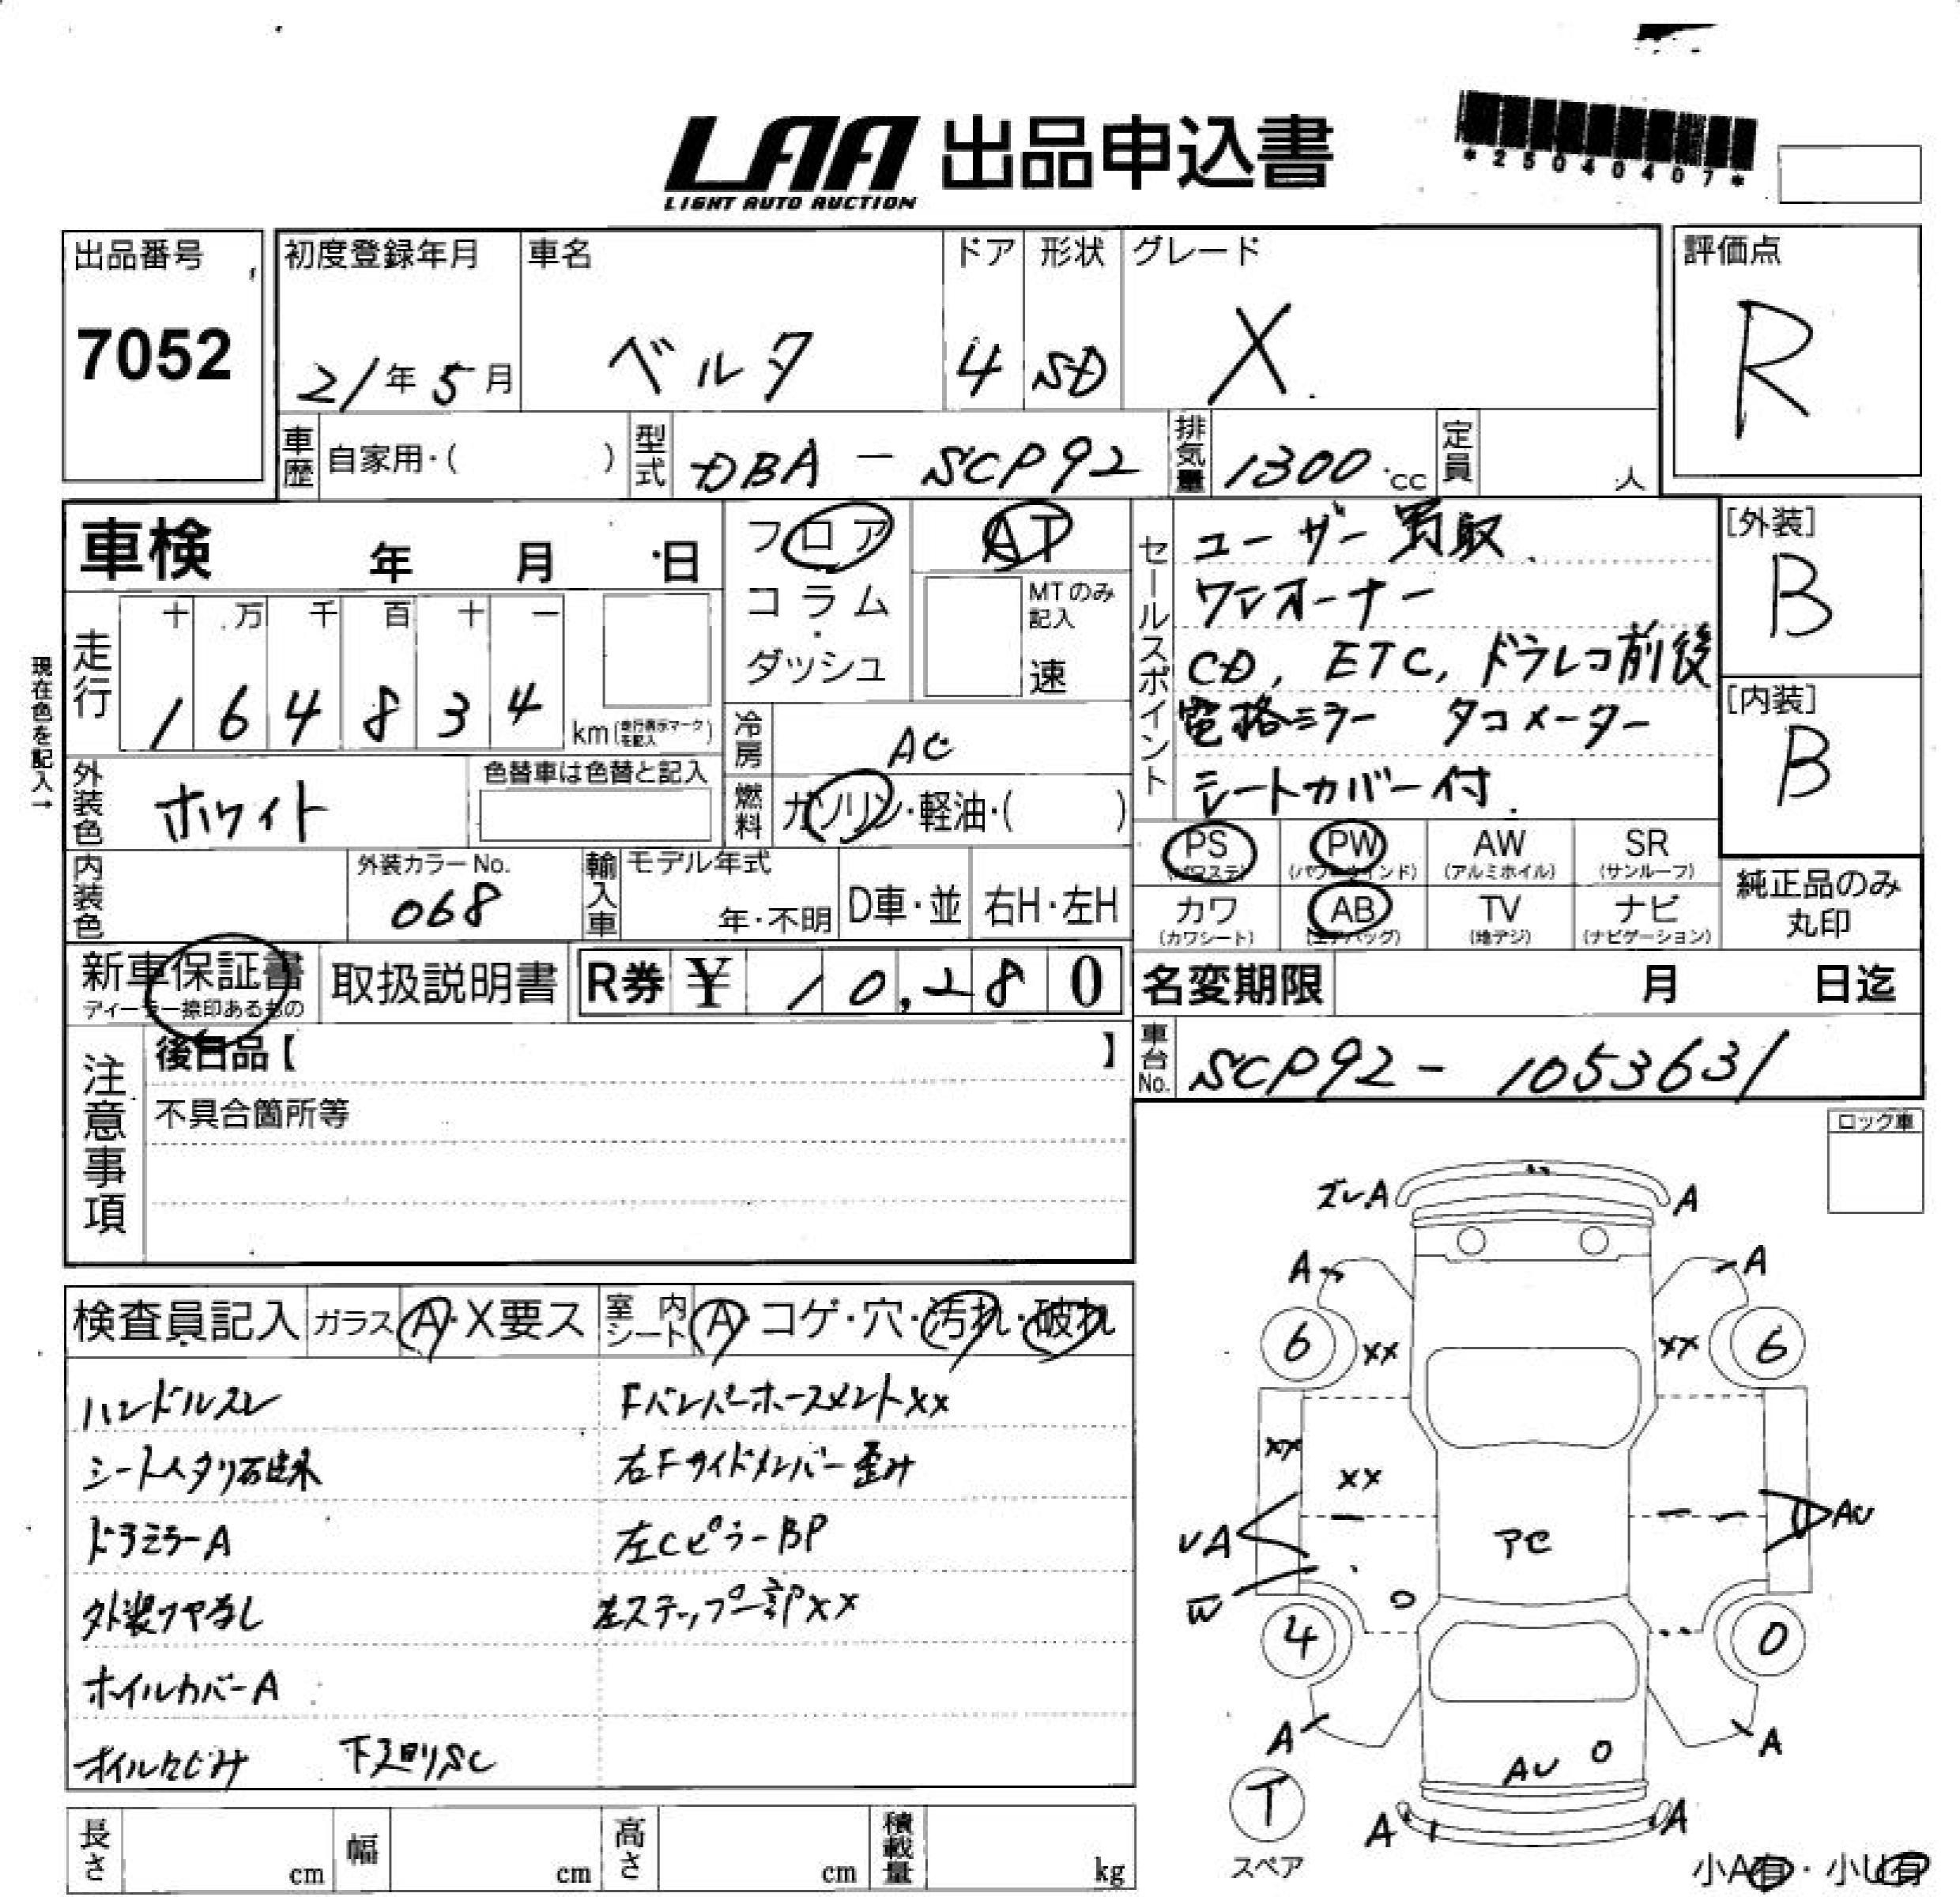 LAA 出品申込書
LIGHT AUTO AUCTION
*25040407*
出品番号
7052
初度登録年月
21年5月
車名
ベルタ
ドア
4
形状
SD
グレード
X
評価点
R
車歴 自家用・( )
型式 DBA-SCP92
排気量 1300 cc
定員 人
車検 年 月 日
フロア
コラム
ダッシュ
AT
MTのみ記入
速
セールスポイント
ユーザー買取
ワンオーナー
CD, ETC, ドラレコ前後
電格ミラー タコメーター
シートカバー付
[外装]
B
[内装]
B
現在色を記入→
走行
十 万 千 百 十 一
1 6 4 8 3 4
km(走行表示マークを記入)
冷房 AC
燃料 ガソリン・軽油・( )
外装色 ホワイト
色替車は色替と記入
内装色
外装カラーNo.
068
輸入車
モデル年式
年・不明
D車・並
右H・左H
PS
(パワステ)
PW
(パワーウインド)
AW
(アルミホイル)
SR
(サンルーフ)
カワ
(カワシート)
AB
(エアバッグ)
TV
(地デジ)
ナビ
(ナビゲーション)
純正品のみ
丸印
新車保証書
ディーラー捺印あるもの
取扱説明書
R券 ¥ 10,280
名変期限 月 日迄
車台No. SCP92-1053631
注意事項
後日品【 】
不具合箇所等
ロック車
検査員記入
ガラス A・X要ス
室内シート A・コゲ・穴・汚れ・破れ
ハンドルスレ
Fバンパーホースメントxx
シートヘタリ
右Fサイドメンバー歪み
ドアミラーA
左CピラーBP
外装ツヤなし
左ステップ一部xx
ホイルカバーA
オイルにじみ 下廻りSC
ズレA
A
A
A
6
xx
xx
6
xx
xx
UA
アセ
AU
W
4
0
A
AU
A
T
スペア
A
A
小A有・小U有
長さ cm
幅 cm
高さ cm
積載量 kg